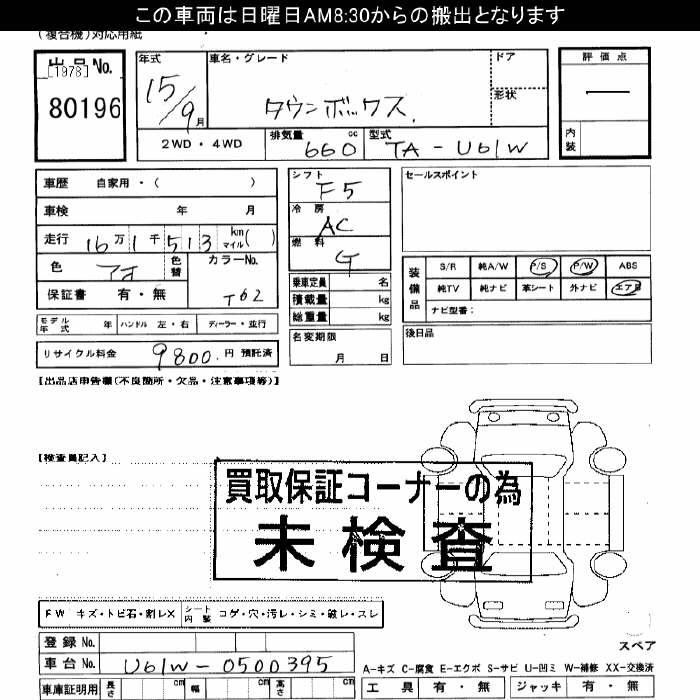 この車両は日曜日AM8:30からの搬出となります
(複合機)対応用紙
出品No.
[1978]
80196
年式
15/9月
車名・グレード
タウンボックス.
ドア
形状
評価点
内装
2WD・4WD
排気量 660 cc
型式 TA-U61W
車歴 自家用・( )
車検 年 月
走行 16万1千513 km マイル( )
色 アオ
色替
カラーNo. T62
保証書 有・無
モデル年式 年 ハンドル 左・右 ディーラー・並行
リサイクル料金 9800.円 預託済
シフト F5
冷房 AC
燃料 G
乗車定員 名
積載量 kg
総重量 kg
名変期限
月 日
セールスポイント
装備品
S/R 純A/W P/S P/W ABS
純TV 純ナビ 革シート 外ナビ エアB
ナビ型番:
後日品
【出品店申告欄(不良箇所・欠品・注意事項等)】
【検査員記入】
買取保証コーナーの為
未検査
FW キズ・トビ石・割レX
シート内装 コゲ・穴・汚レ・シミ・破レ・スレ
登録No.
車台No. U61W-0500395
車庫証明用 長さ cm 幅 cm 高さ cm
スペア
A-キズ C-腐食 E-エクボ S-サビ U-凹ミ W-補修 XX-交換済
工具 有・無 ジャッキ 有・無